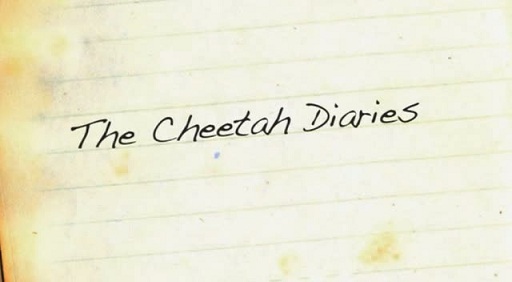 The Cheetah Diaries